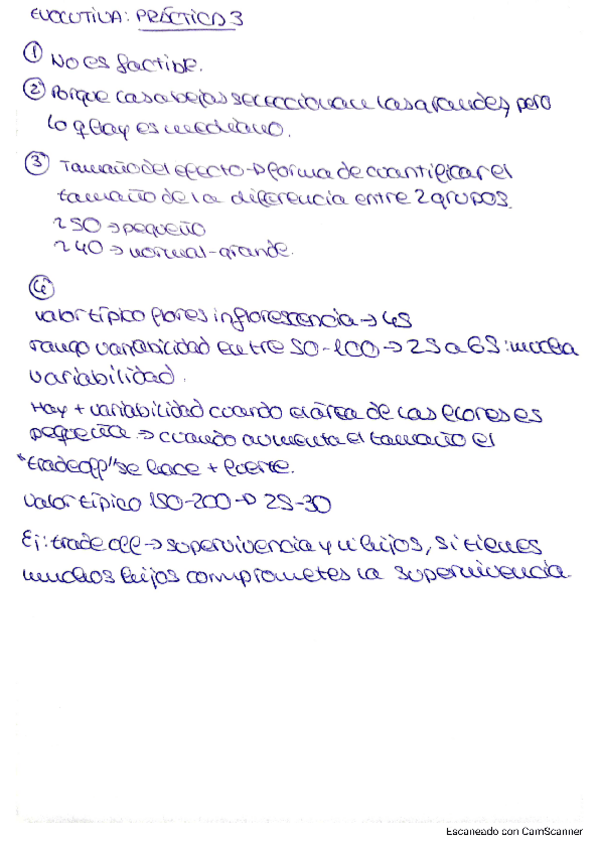 EVOLUTIVA: PRÁCTICA 3
① No es factible.
② Porque las abejas seleccionan las grandes, pero
lo q hay es mediano.
③ Tamaño del efecto → forma de cuantificar el
tamaño de la diferencia entre 2 grupos.
250 → pequeño
240 → normal-grande.
④
Valor típico flores inflorescencia → 45
rango variabilidad entre 50-100 → 25 a 65: mucha
variabilidad.
Hay + variabilidad cuando el área de las flores es
pequeña → cuando aumenta el tamaño el
"tradeoff" se hace + fuerte.
Valor típico 150-200 → 25-30
Ej: trade off → supervivencia y nº hijos, si tienes
muchos hijos comprometes la supervivencia.
Escaneado con CamScanner